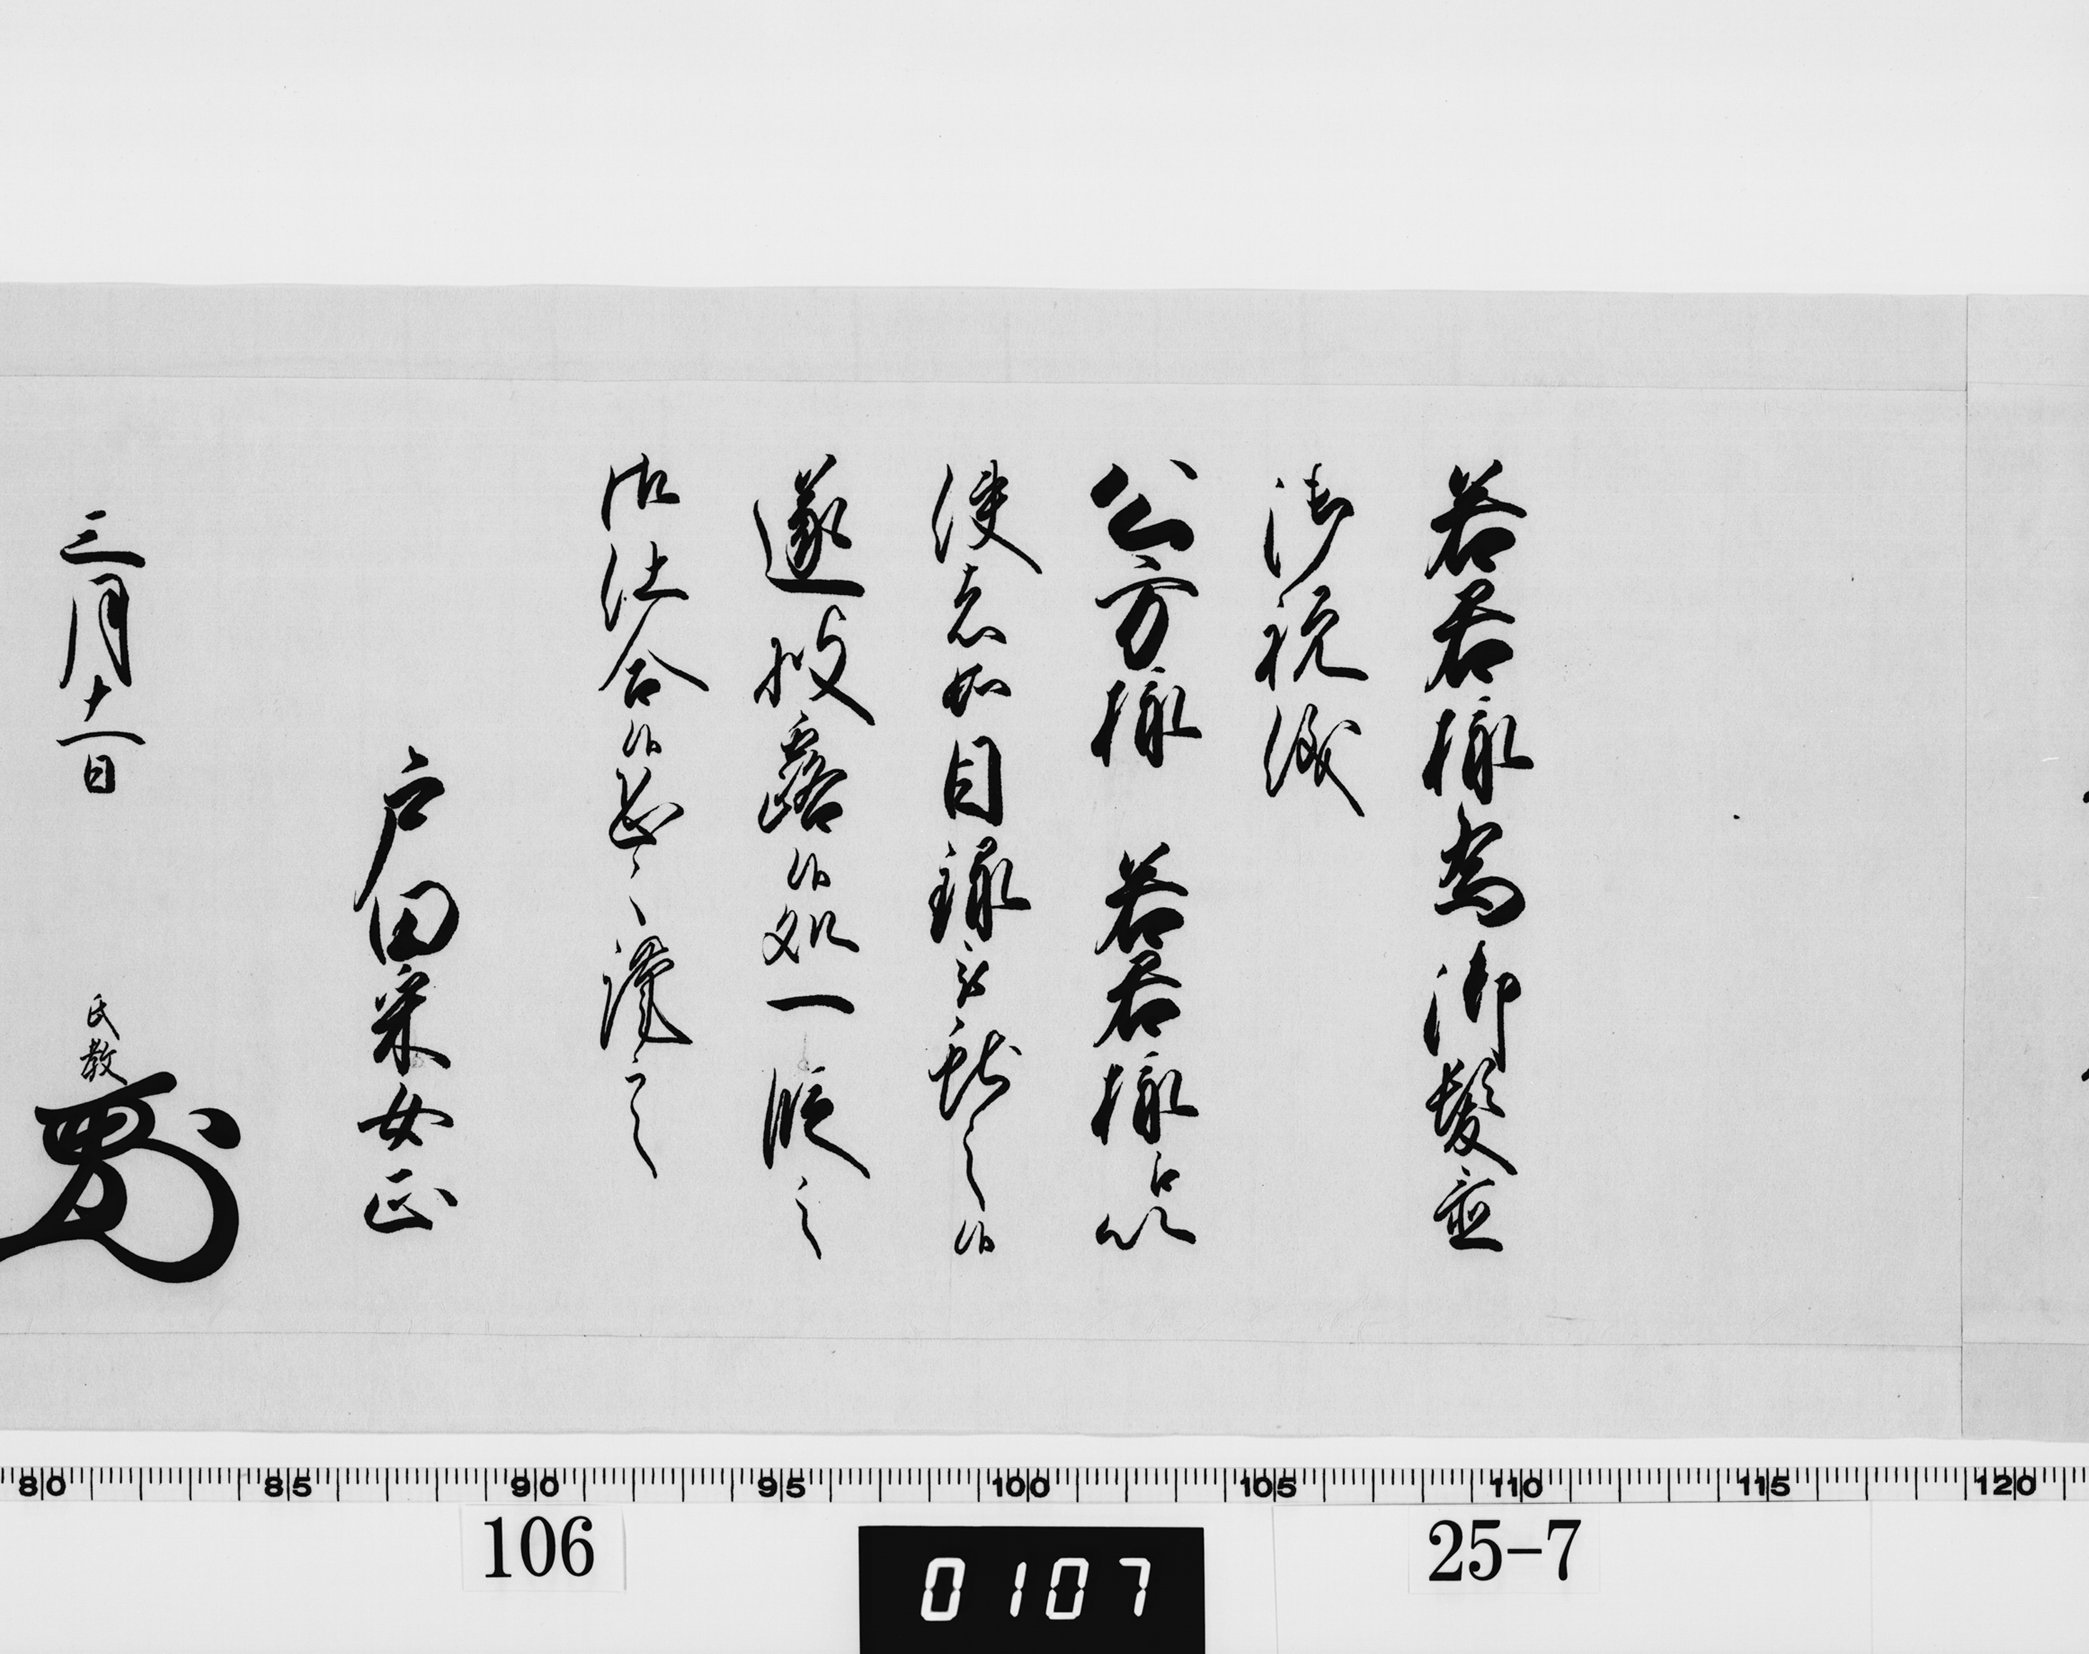 若君様為御髪置
御祝儀
公方様　若君様江以
使者如目録被献之候
遂披露候処一段之
御仕合候恐々謹言
戸田采女正
三月十一日
氏教
80 85 90 95 100 105 110 115 120
106
0107
25-7